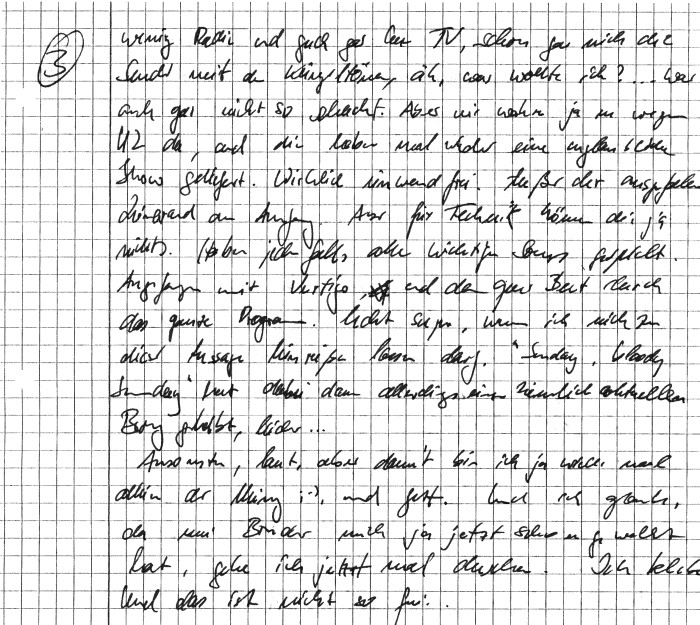 3
wenig Radio und guck gar kein TV, schon gar nich die
Sender mit den Klingeltönen, äh, was wollte ich? ... war
auch gar nicht so schlecht. Aber wir waren ja nu wegen
U2 da, und die haben mal wieder eine
Show geliefert. Wirklich einwandfrei. Außer der ausgefallen
Leinwand am Anfang. Aber für Technik können die ja
nichts. Haben jedenfalls alle wichtigen Songs gespielt.
Angefangen mit Vertigo, und dann quer Beet durch
das ganze Programm. Echt super, wenn ich mich zu
dieser Aussage hinreißen lassen darf. "Sunday, bloody
Sunday" hat dabei dann allerdings einen ziemlich aktuellen
Bezug gehabt, leider...
Ansonsten, laut, aber damit bin ich ja wieder mal
allein der Meinung :-), und gut. Und ich glaub,
da mein Bruder mich ja jetzt schon geweckt
hat, gehe ich jetzt mal duschen. Ich
Und das ist nicht so fein.